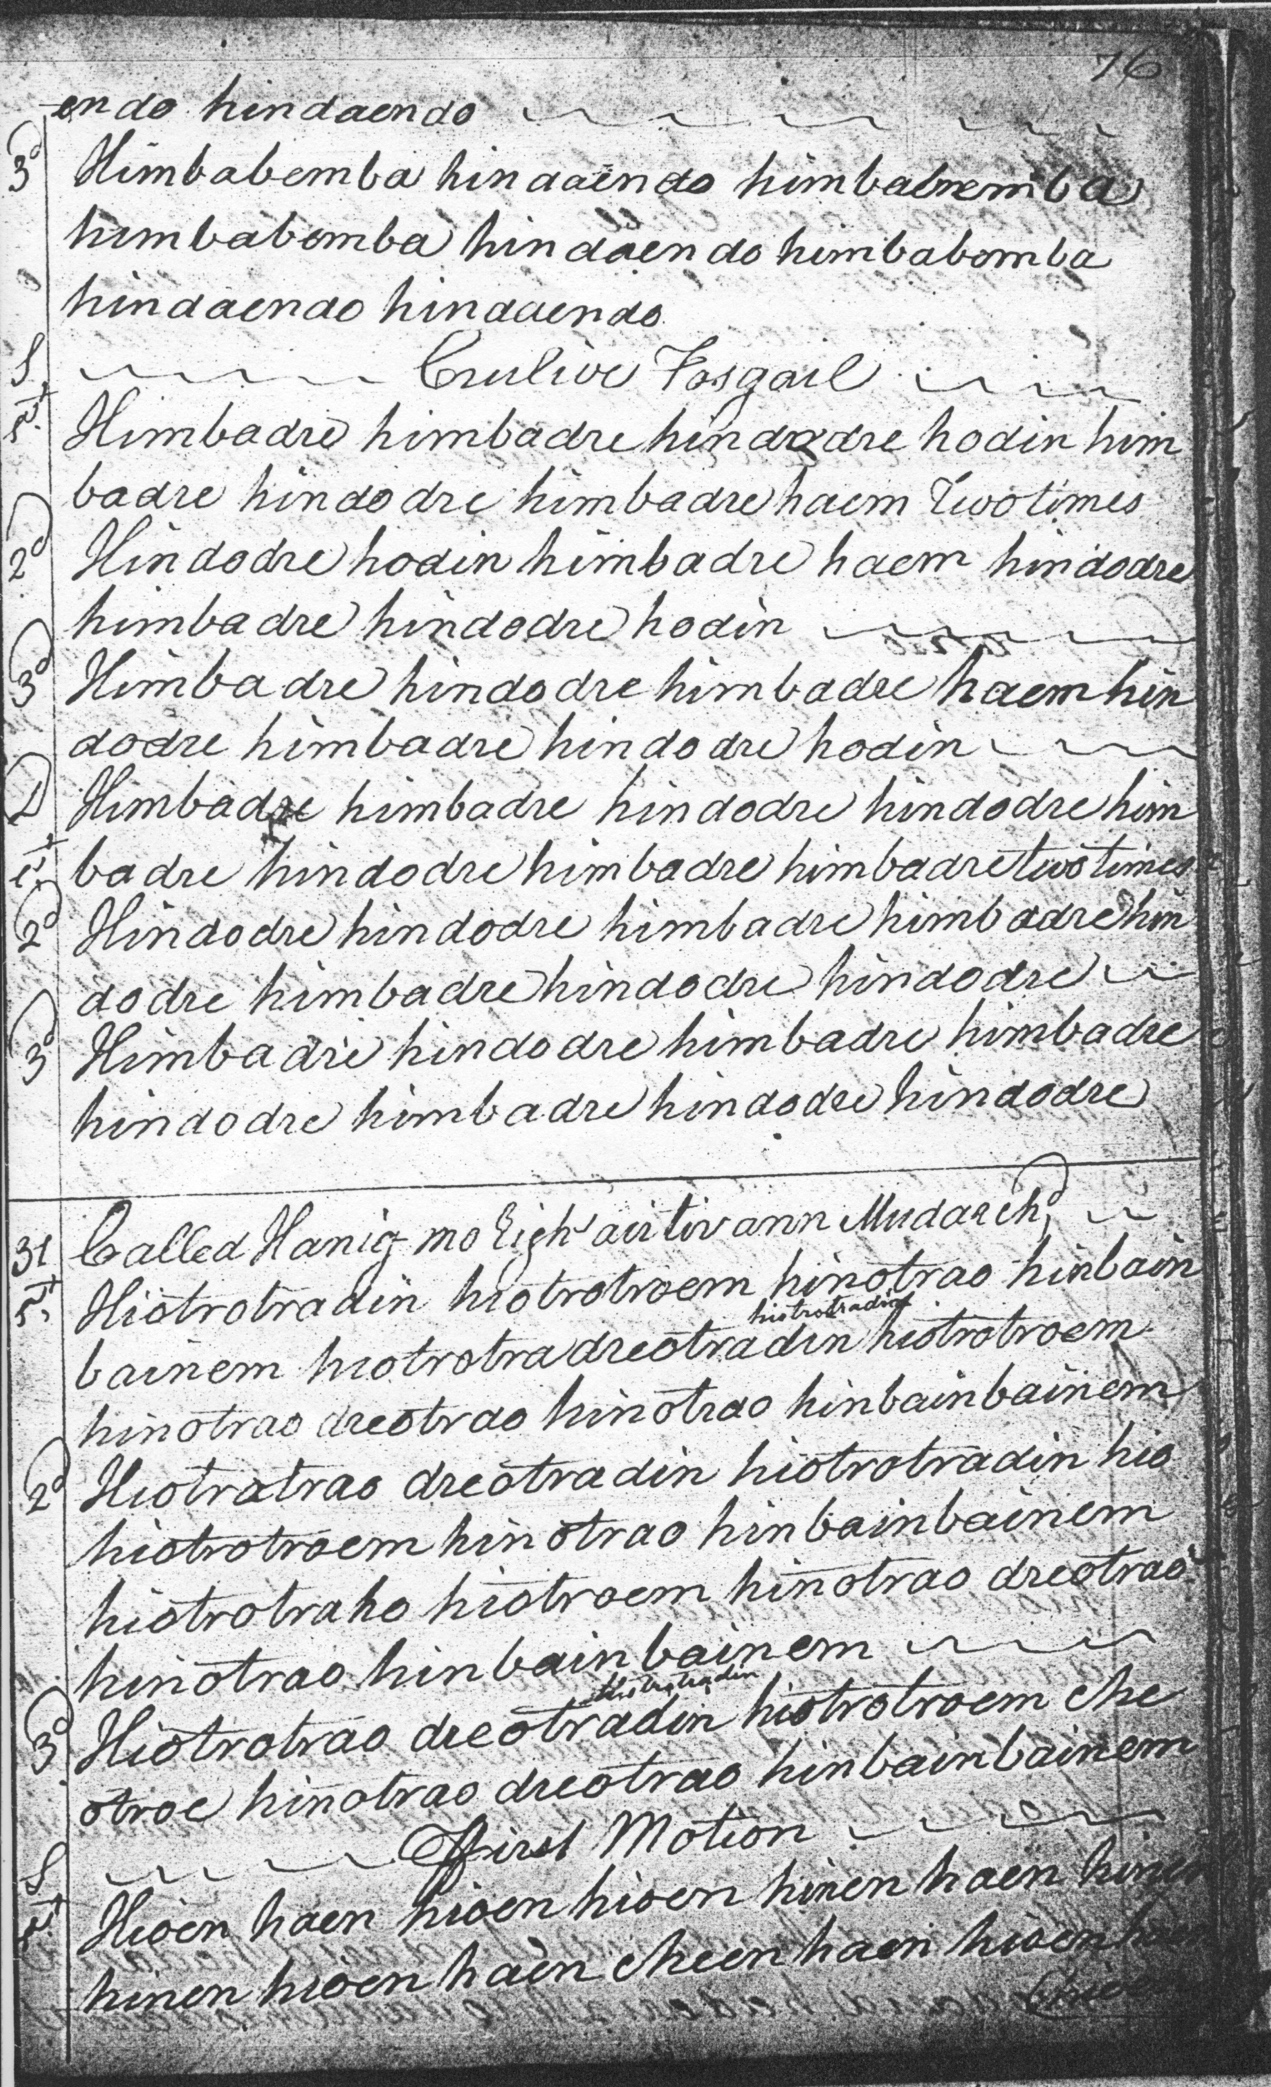 76
endo hindaendo
3d Himbabemba hindaendo himbabemba
himbabemba hindaendo himbabemba
hindaendo hindaendo
S Crulive Fosgail
1st Himbadre himbadre hindodre hodin him
badre hindodre himbadre haem Two times
2d Hindodre hodin himbadre haem hindodre
himbadre hindodre hodin
3d Himbadre hindodre himbadre haem hin
dodre himbadre hindodre hodin
D Himbadre himbadre hindodre hindodre him
1st badre hindodre himbadre himbadre two times
2d Hindodre hindodre himbadre himbadre hin
dodre himbadre hindodre hindodre
3d Himbadre hindodre himbadre himbadre
hindodre himbadre hindodre hindodre
31 Called Hanig mo Righ air tir ann Mudarch,
1st Hiotrotradin hiotrotroem hinotrao hinbain
hiotrotradin
bainem hiotrotra dreotradin hiotrotroem
hinotrao dreotrao hinotrao hinbainbainem
2d Hiotrotrao dreotradin hiotrotradin hio
hiotrotroem hinotrao hinbainbainem
hiotrotraho hiotroem hinotrao dreotrao
hinotrao hinbainbainem
hiotrotradin
3d Hiotrotrao dreotradin hiotrotroem che
otroe hinotrao dreotrao hinbainbainem
S First Motion
1st Hioen haen hioen hioen hinen haen hinen
hinen hioen haen cheen haen hioen haen